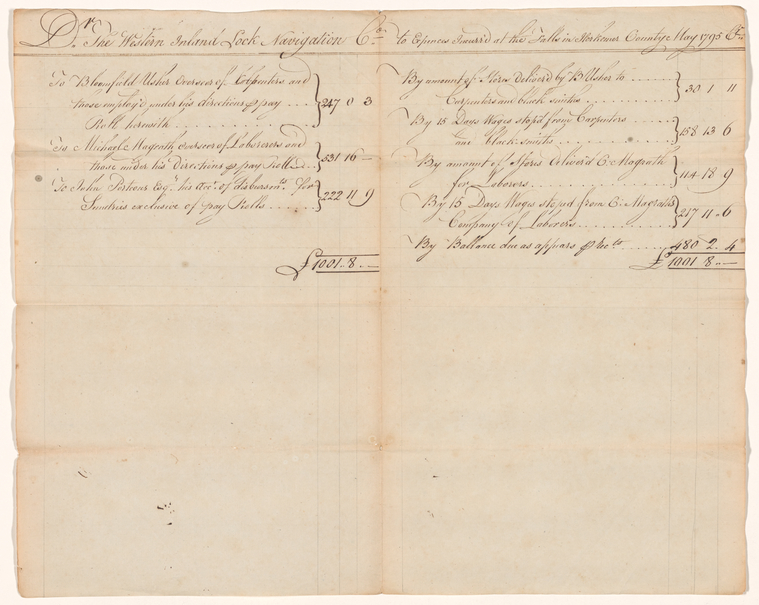 Dr. The Western Inland Lock Navigation Co. to Expences Incurr'd at the Falls in Herkemer County May 1795 Cr.
To Bloomfield Usher Overseer of Carpenters and
those employ'd under his directions ⅌ pay
Roll herewith 247 0 3
To Michael Magrath overseer of Laborers and
those under his directions ⅌ pay Roll 531 16 —
To John Porteous Esqr. his Acct. of disbursemts. for
Sundries exclusive of pay Rolls 222 11 9
£1001 . 8 . —
By amount of Stores Deliver'd by B Usher to
Carpenters and black smiths 30 1 11
By 15 Days Wages stop'd from Carpenters
and black smiths 158 13 6
By amount of Stores Deliver'd C. Magrath
for Laborers 114 18 9
By 15 Days Wages stopd from C. Magrath's
Company of Laborers 217 11 . 6
By Ballance due as appears ⅌ Acct. 480 . 2 . 4
£1001 8 . —